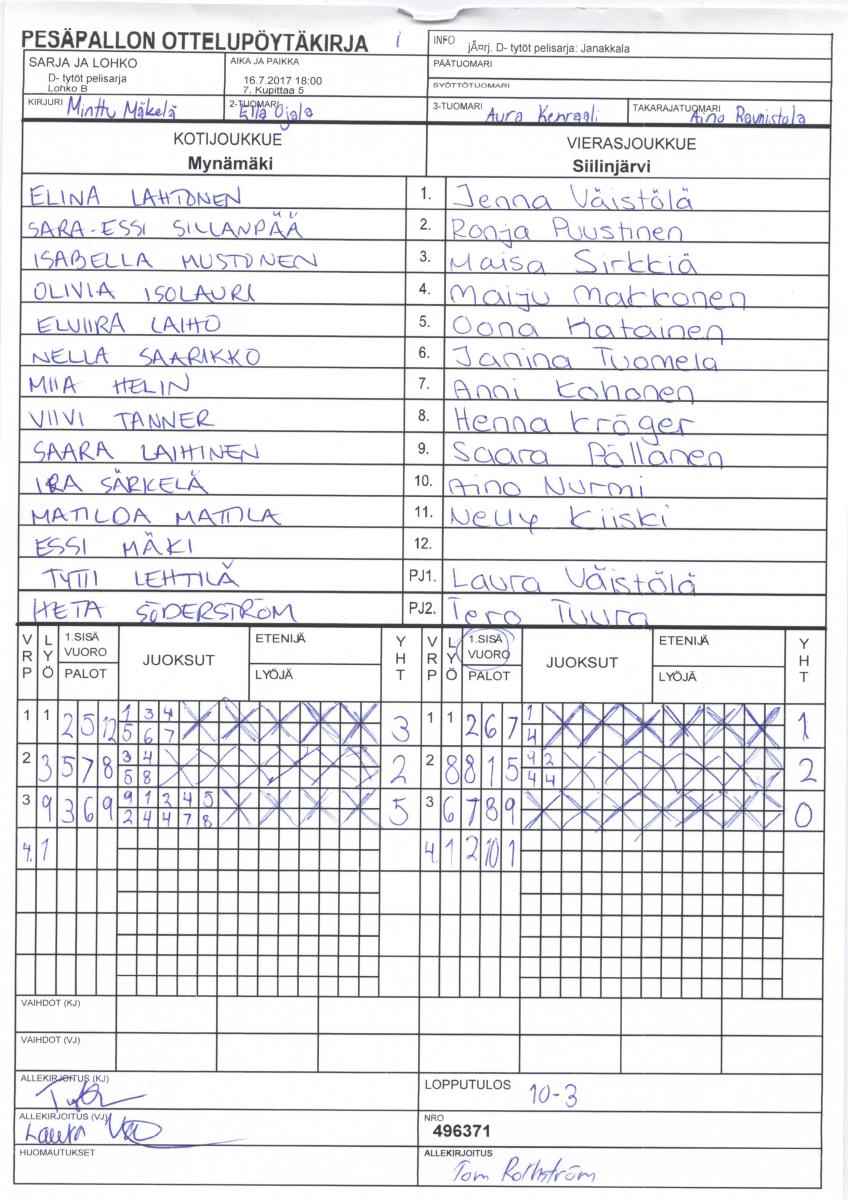 PESÄPALLON OTTELUPÖYTÄKIRJA i
INFO jÃ¤rj. D- tytöt pelisarja: Janakkala
SARJA JA LOHKO
D- tytöt pelisarja
Lohko B
AIKA JA PAIKKA
16.7.2017 18:00
7. Kupittaa 5
PÄÄTUOMARI
SYÖTTÖTUOMARI
KIRJURI Minttu Mäkelä
2-TUOMARI Ella Ojala
3-TUOMARI Aura Kenraali
TAKARAJATUOMARI Aino Raunistola
KOTIJOUKKUE
Mynämäki
VIERASJOUKKUE
Siilinjärvi
ELINA LAHTONEN 1. Jenna Väistölä
SARA-ESSI SILLANPÄÄ 2. Ronja Puustinen
ISABELLA MUSTONEN 3. Maisa Sirkkiä
OLIVIA ISOLAURI 4. Maiju Makkonen
ELVIIRA LAIHO 5. Oona Katainen
NELLA SAARIKKO 6. Janina Tuomela
MIIA HELIN 7. Anni Kohonen
VIIVI TANNER 8. Henna Kröger
SAARA LAIHINEN 9. Saara Pällänen
IRA SÄRKELÄ 10. Aino Nurmi
MATILDA MATTILA 11. Nelly Kiiski
ESSI MÄKI 12.
TYTTI LEHTILÄ PJ1. Laura Väistölä
HETA SÖDERSTRÖM PJ2. Tero Tuura
VRP LYÖ 1.SISÄ VUORO PALOT JUOKSUT ETENIJÄ LYÖJÄ YHT VRP LYÖ 1.SISÄ VUORO PALOT JUOKSUT ETENIJÄ LYÖJÄ YHT
1 1 2 5 12 1 3 4 3 1 1 2 6 7 1 1
5 6 7 4
2 3 5 7 8 3 4 2 2 8 8 1 5 4 2 2
5 8 4 4
3 9 3 6 9 9 1 2 4 5 5 3 6 7 8 9 0
2 4 4 7 8
4. 1 4. 1 2 10 1
VAIHDOT (KJ)
VAIHDOT (VJ)
ALLEKIRJOITUS (KJ)
LOPPUTULOS 10-3
ALLEKIRJOITUS (VJ) Laura
NRO
496371
HUOMAUTUKSET
ALLEKIRJOITUS
Tom Rothström